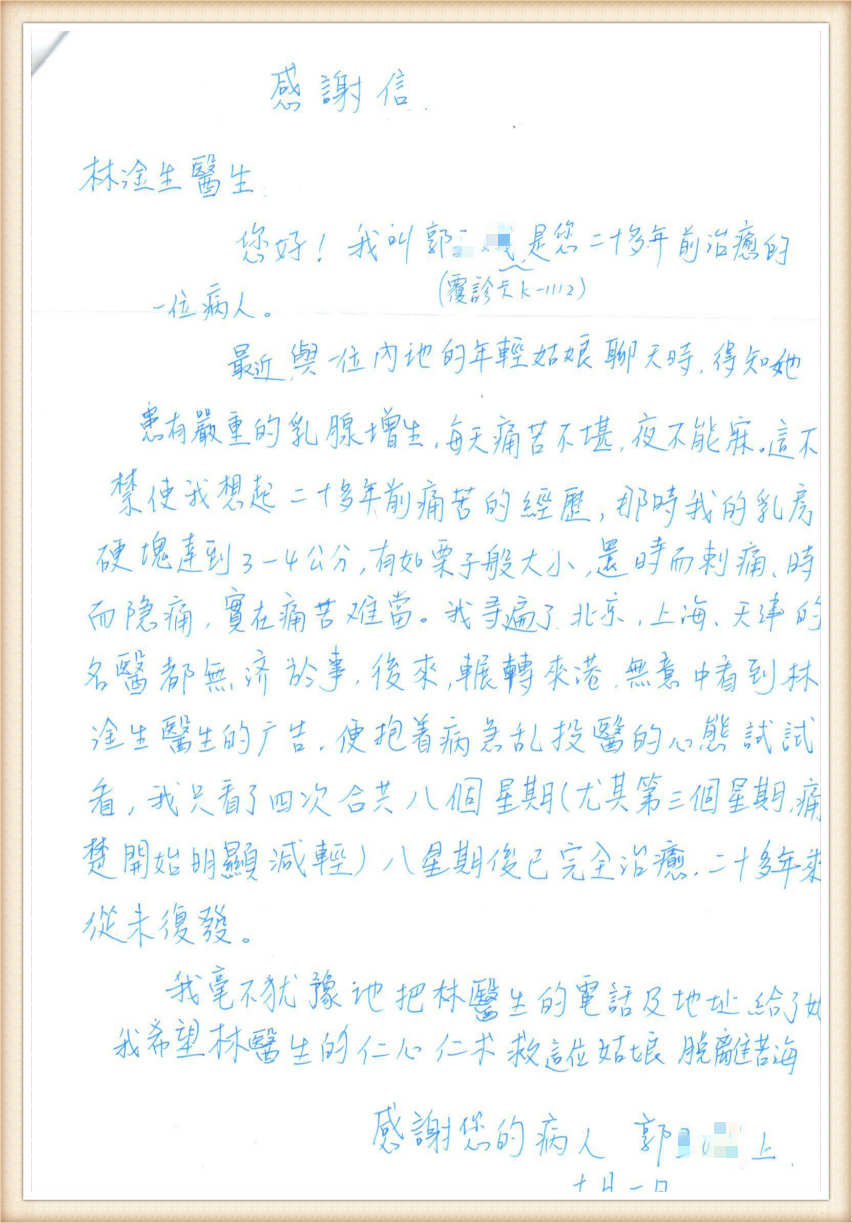 感謝信
林淦生醫生
您好！我叫郭 是您二十多年前治癒的
(覆診卡K-1112)
一位病人。
最近,與一位內地的年輕姑娘聊天時,得知她
患有嚴重的乳腺增生,每天痛苦不堪,夜不能寐。這不
禁使我想起二十多年前痛苦的經歷,那時我的乳房
硬塊達到3-4公分,有如栗子般大小,還時而刺痛、時
而隐痛,實在痛苦难當。我寻遍了北京、上海、天津的
名醫都無济於事,後來,輾轉來港,無意中看到林
淦生醫生的广告,便抱着病急乱投醫的心態試試
看,我只看了四次合共八個星期(尤其第三個星期,痛
楚開始明顯減輕)八星期後已完全治癒,二十多年来
從未復發。
我毫不犹豫地把林醫生的電話及地址給了她
我希望林醫生的仁心仁术救這位姑娘脫離苦海
感謝您的病人 郭 上
十月一日